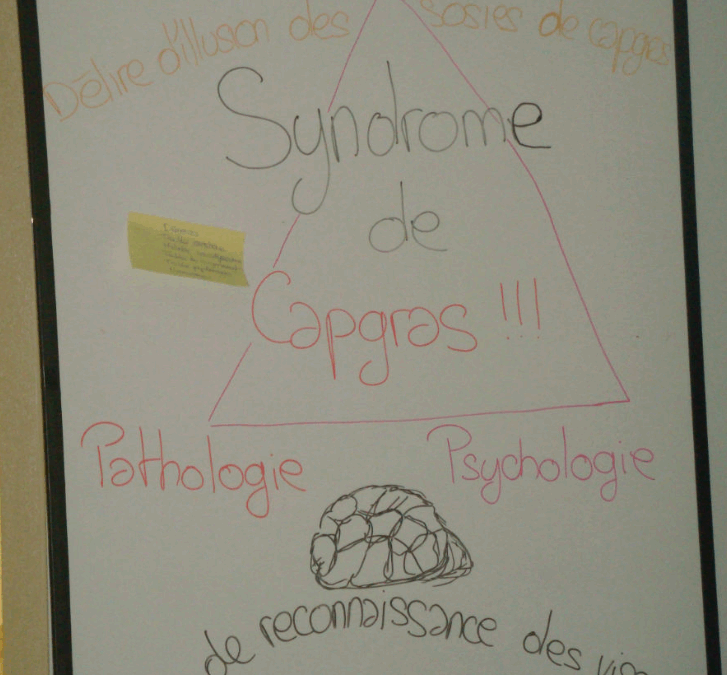 Délire d'illusion des sosies de capgras
Syndrome
de
Capgras !!!
Pathologie Psychologie
de reconnaissance des